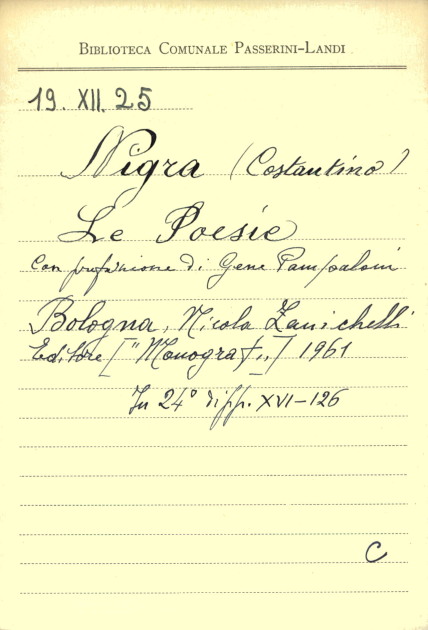 BIBLIOTECA COMUNALE PASSERINI-LANDI
19. XII. 25
Nigra (Costantino)
Le Poesie
Con prefazione di Geno Pampaloni
Bologna, Nicola Zanichelli
Editore ["Monograf„] 1961
In 24° di pp. XVI-126
C